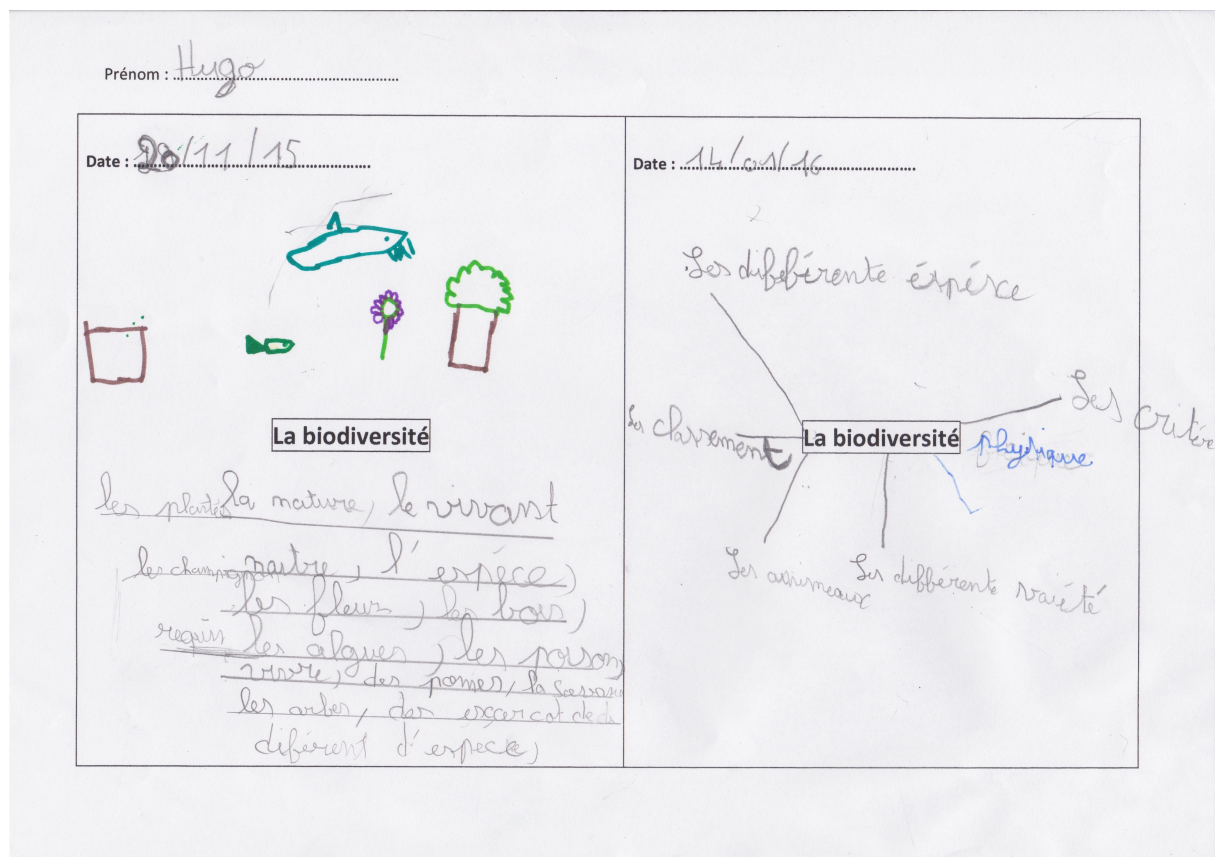 Prénom : Hugo
Date : 20/11/15
La biodiversité
les plantes la nature, le vivant
les champignon naitre, l'espéce,
les fleur, les bois,
requin les algues, les poison
vivre, des pomier, la Savane
les arber, des
diférent d'espéce,
Date : 14/01/16
Les différente éspésce
Les critére
Les classement
La biodiversité
physique
Les annimeaux
Les différente vaiété